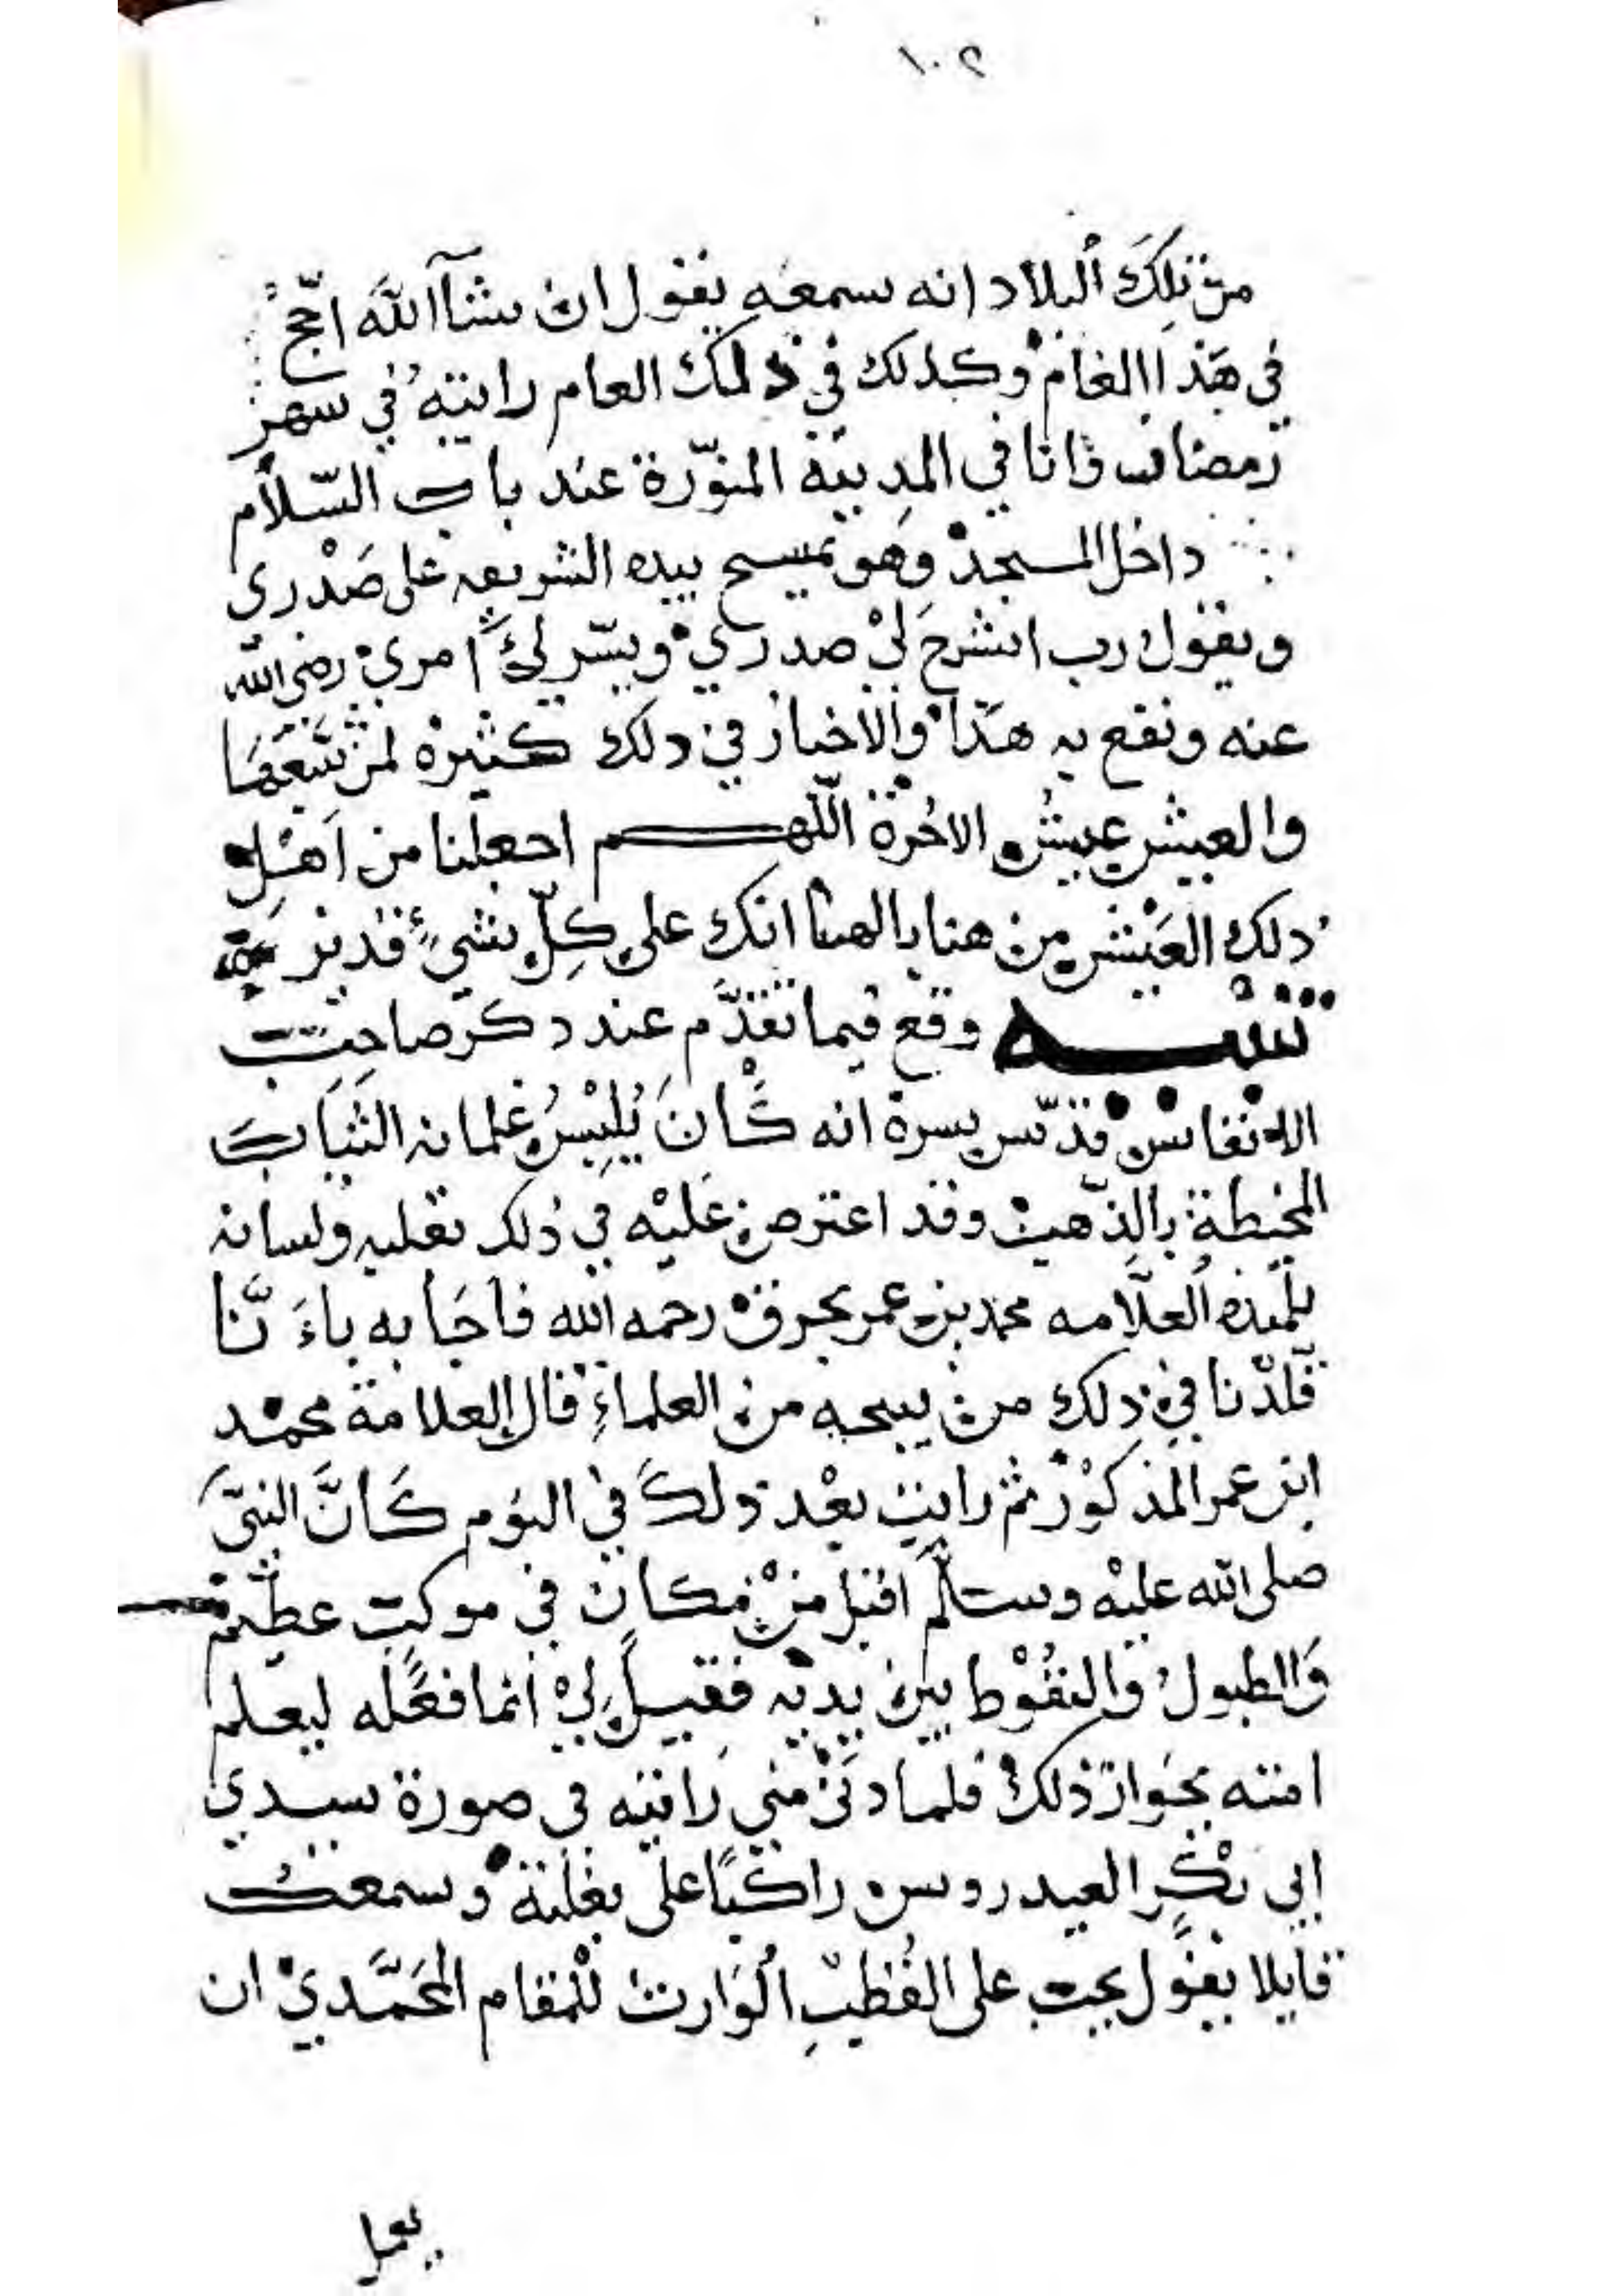 ١٠٢
من تلك البلاد انه سمعه يقول ان شآء اللَّه احّجُ
في هَذا العَام وكذلك في ذلك العام رايته في شهر
رمضان وانا في المدينة المنوّرة عند باب السّلام
داخل المسجد وهو يمسح بيده الشريفه على صَدْري
ويقول رب اشرح لي صدري ويسّر لي امري رضي الله
عنه ونفع به هَذا والاخبار في ذلك كثيره لمن تتبعها
والعيش عيش الاخرة اللّهم اجعلنا من اَهْل
ذلك العَيْش من هنا بالهنا انك على كلِّ شيءٍ قدير
تنبيه وقع فيما تقدَّم عند ذكر صاحب
الانفاس قدّس سره انه كَانَ يُلبِسُ غلمانه الثيابَ
المخيطة بالذّهب وقد اعترض عَليْه في ذلك بقلبه ولسانه
تلميذه العلّامه محمد بن عمر بحرق رحمه الله فاجَابه باءَنّا
قلّدْنا في ذلك من يبيحه من العلماءِ قال العلامة محمد
ابن عمر المذكوْر ثم رايت بعْد ذلكَ في النوم كَانَّ النبيَّ
صلى الله عليْه وسلّم اقبل منْ مكان في موكب عظيم
وَالطبول والنقُوْط بين يديْه فقيل لي انما فعَله ليعلم
امته بجَواز ذلك فلما دَنىْ مني رَايته في صورة سيدي
ابي بكْرٍ العيدروس راكبًا على بغلته وسمعتُ
قايلا يقول يجب على القُطب الوارث للمقام المحَمَّديْ ان
يعمل